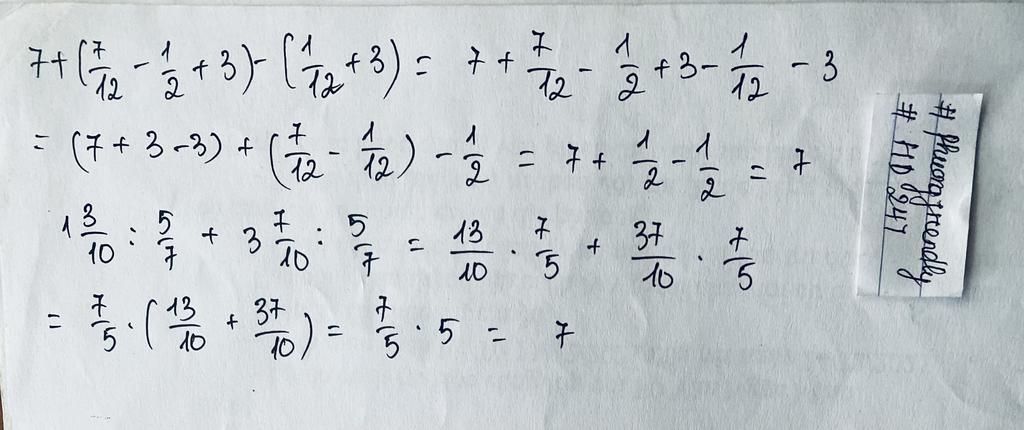 7 + (7/12 - 1/2 + 3) - (1/12 + 3) = 7 + 7/12 - 1/2 + 3 - 1/12 - 3
= (7 + 3 - 3) + (7/12 - 1/12) - 1/2 = 7 + 1/2 - 1/2 = 7
1 3/10 : 5/7 + 3 7/10 : 5/7 = 13/10 . 7/5 + 37/10 . 7/5
= 7/5 . (13/10 + 37/10) = 7/5 . 5 = 7
# Phuongfriendly
# HD 247